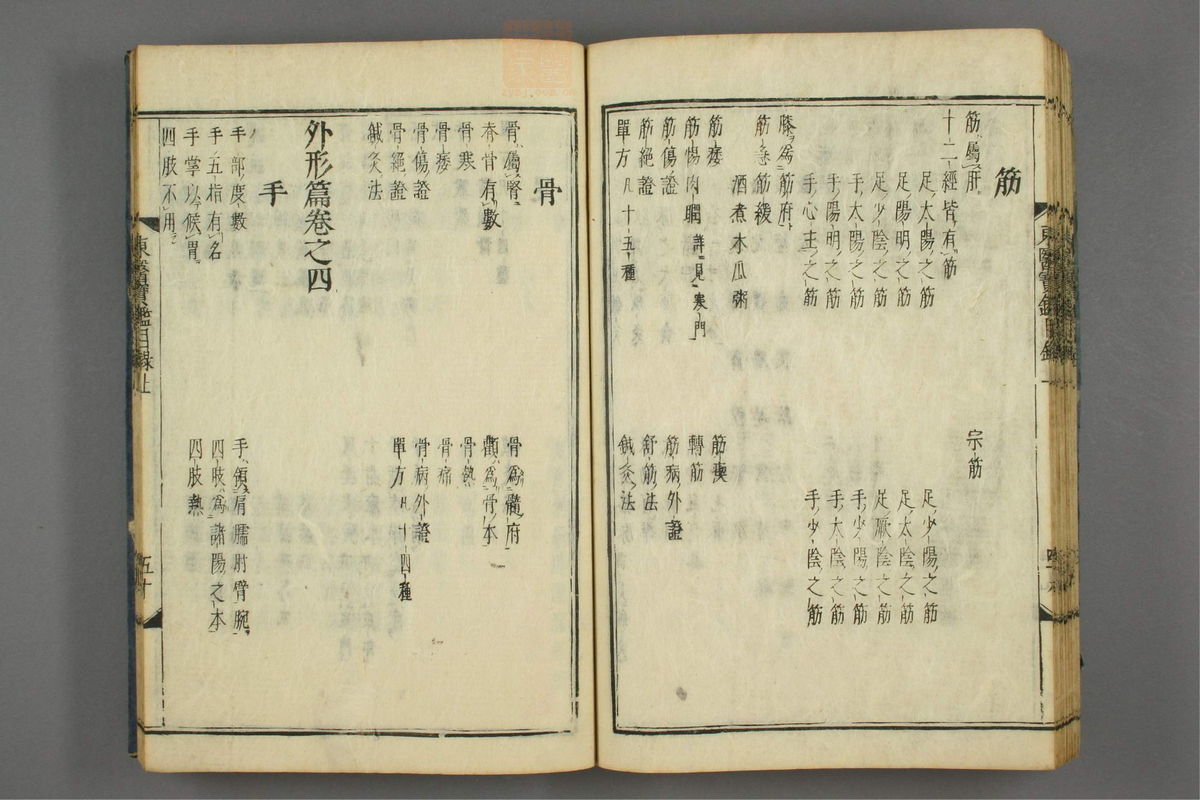 筋
筋屬肝
宗筋
十二經皆有筋
足太陽之筋
足少陽之筋
足陽明之筋
足太陰之筋
足少陰之筋
足厥陰之筋
手太陽之筋
手少陽之筋
手陽明之筋
手太陰之筋
手心主之筋
手少陰之筋
膝爲筋府
筋急筋緩
酒煮木瓜粥
筋痿
筋㾏
筋惕肉瞤 詳見寒門
轉筋
筋傷證
筋病外證
筋絕證
舒筋法
單方凡十五種
鍼灸法
骨
骨屬腎
骨爲髓府
脊骨有數
顱爲骨本
骨寒
骨熱
骨痿
骨痛
骨傷證
骨病外證
骨絕證
單方凡十四種
鍼灸法
外形篇卷之四
手
手部度數
手領肩臑肘臂腕
手五指有名
四肢爲諸陽之本
手掌以候胃
四肢熱
四肢不用
東醫寶鑑目錄上
五十